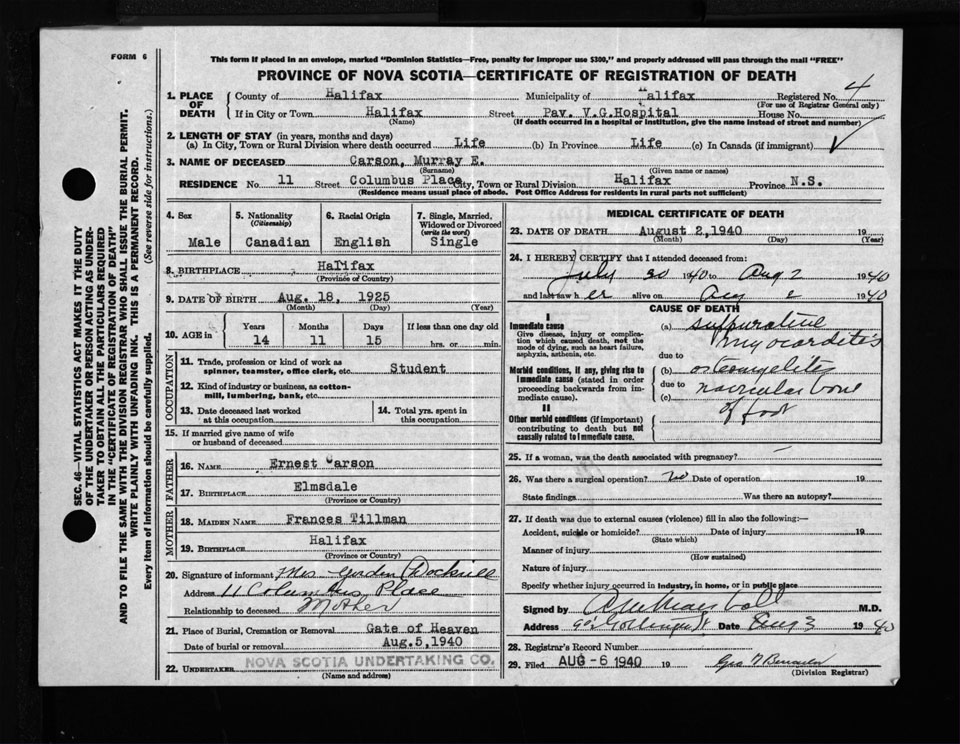 FORM 6
This form if placed in an envelope, marked "Dominion Statistics—Free, penalty for improper use $300," and properly addressed will pass through the mail "FREE"
PROVINCE OF NOVA SCOTIA—CERTIFICATE OF REGISTRATION OF DEATH
SEC. 46—VITAL STATISTICS ACT MAKES IT THE DUTY
OF THE UNDERTAKER OR PERSON ACTING AS UNDER-
TAKER TO OBTAIN ALL THE PARTICULARS REQUIRED
IN THE "CERTIFICATE OF REGISTRATION OF DEATH"
AND TO FILE THE SAME WITH THE DIVISION REGISTRAR WHO SHALL ISSUE THE BURIAL PERMIT.
WRITE PLAINLY WITH UNFADING INK. THIS IS A PERMANENT RECORD.
Every item of information should be carefully supplied. (See reverse side for instructions.)
1. PLACE OF DEATH
County of Halifax Municipality of Halifax Registered No. 4
(For use of Registrar General only)
If in City or Town Halifax Street Pav. V.G.Hospital House No.
(Name) (If death occurred in a hospital or institution, give the name instead of street and number)
2. LENGTH OF STAY (in years, months and days)
(a) In City, Town or Rural Division where death occurred Life (b) In Province Life (c) In Canada (if immigrant)
3. NAME OF DECEASED Carson, Murray E.
(Surname) (Given name or names)
RESIDENCE No. 11 Street Columbus Place City, Town or Rural Division Halifax Province N.S.
(Residence means usual place of abode. Post Office Address for residents in rural parts not sufficient)
4. Sex
Male
5. Nationality
(Citizenship)
Canadian
6. Racial Origin
English
7. Single, Married,
Widowed or Divorced
(write the word)
Single
8. BIRTHPLACE Halifax
(Province or Country)
9. DATE OF BIRTH Aug. 18, 1925
(Month) (Day) (Year)
10. AGE in Years Months Days If less than one day old
14 11 15 hrs. or min.
OCCUPATION
11. Trade, profession or kind of work as
spinner, teamster, office clerk, etc. Student
12. Kind of industry or business, as cotton-
mill, lumbering, bank, etc.
13. Date deceased last worked
at this occupation
14. Total yrs. spent in
this occupation
15. If married give name of wife
or husband of deceased
FATHER
16. NAME Ernest Carson
17. BIRTHPLACE Elmsdale
(Province or Country)
MOTHER
18. MAIDEN NAME Frances Tillman
19. BIRTHPLACE Halifax
(Province or Country)
20. Signature of informant Mrs Gordon Dockrill
Address 11 Columbus Place
Relationship to deceased Mother
21. Place of Burial, Cremation or Removal Gate of Heaven
Date of burial or removal Aug.5,1940
22. UNDERTAKER NOVA SCOTIA UNDERTAKING CO.
(Name and address)
MEDICAL CERTIFICATE OF DEATH
23. DATE OF DEATH August 2,1940 19
(Month) (Day) (Year)
24. I HEREBY CERTIFY that I attended deceased from:
July 30 1940 to Aug 2 1940
and last saw h er alive on Aug 2 1940
CAUSE OF DEATH
I
Immediate cause
Give disease, injury or complica-
tion which caused death, not the
mode of dying, such as heart failure,
asphyxia, asthenia, etc.
Morbid conditions, if any, giving rise to
immediate cause (stated in order
proceeding backwards from im-
mediate cause).
II
Other morbid conditions (if important)
contributing to death but not
causally related to immediate cause.
(a) suppurative
myocarditis
due to
(b) osteomyelitis
due to navicular bone
(c) of foot
25. If a woman, was the death associated with pregnancy? —
26. Was there a surgical operation? no Date of operation 19
State findings Was there an autopsy?
27. If death was due to external causes (violence) fill in also the following:—
Accident, suicide or homicide? Date of injury 19
(State which)
Manner of injury
(How sustained)
Nature of injury
Specify whether injury occurred in industry, in home, or in public place
Signed by M.D.
Address Date Aug 3 1940
28. Registrar's Record Number
29. Filed AUG -6 1940 19
(Division Registrar)